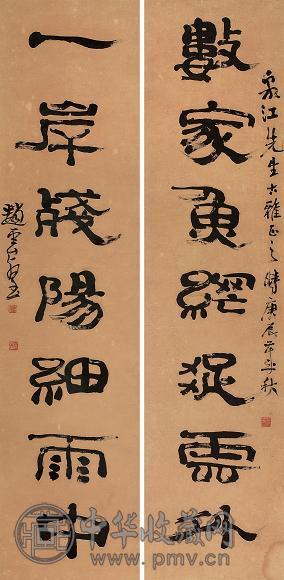 泉江先生大雅正之 時庚辰年之秋
數家魚網疎雲外
一岸殘陽細雨中
趙雲壑
中华收藏网
www.pmv.cn